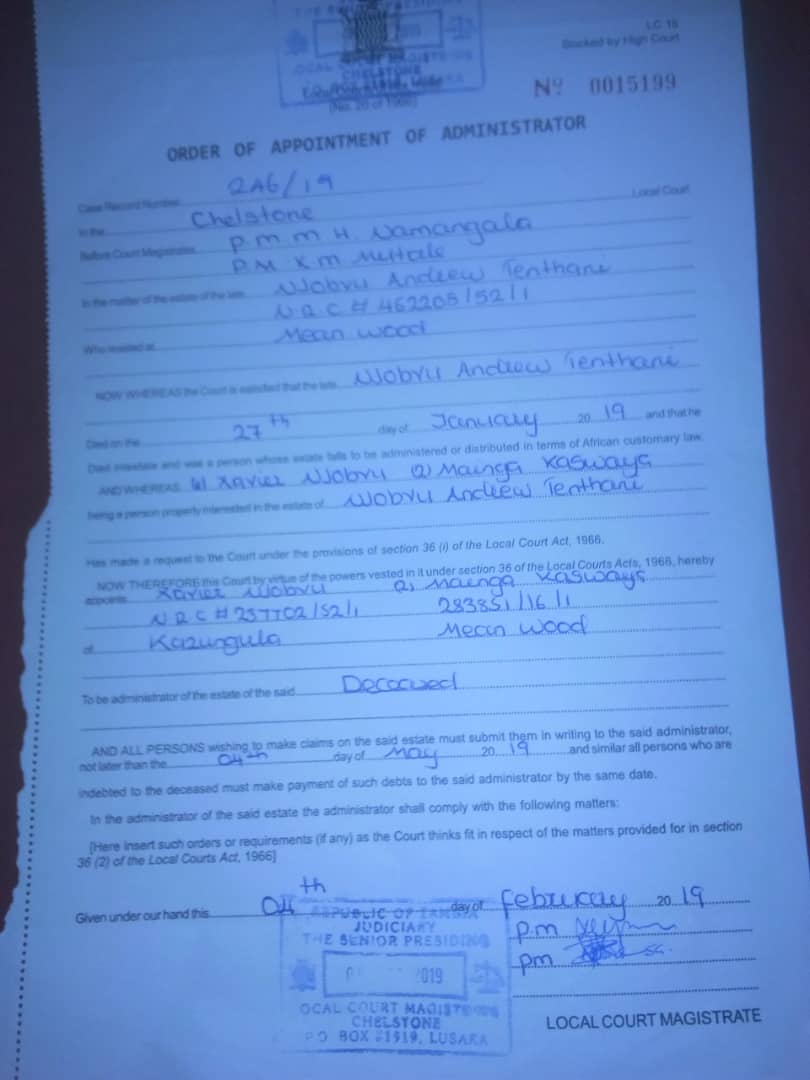 THE SENIOR PRESIDING
2019
LOCAL COURT MAGISTRATE
CHELSTONE
P.O. BOX 31919, LUSAKA
(No. 20 of 1966)
LC 18
Stocked by High Court
No 0015199
ORDER OF APPOINTMENT OF ADMINISTRATOR
Case Record Number 246/19
In the Chelstone Local Court
Before Court Magistrates P.M M H. Namangala
P.M K M
In the matter of the estate of the late Njobvu Andrew Tenthani
N.R.C # 462205/52/1
Who resided at Mean Wood
NOW WHEREAS the Court is satisfied that the late Njobvu Andrew Tenthani
Died on the 27th day of January 2019 and that he
Died intestate and was a person whose estate falls to be administered or distributed in terms of African customary law.
AND WHEREAS (1) Xavier Njobvu (2) Mainga Kasways
being a person properly interested in the estate of Njobvu Andrew Tenthani
Has made a request to the Court under the provisions of section 36 (i) of the Local Court Act, 1966.
NOW THEREFORE this Court by virtue of the powers vested in it under section 36 of the Local Courts Acts, 1966, hereby
appoints Xavier Njobvu 2, Mainga Kasways
N.R.C # 257702/52/1 283851/16/1
of Kazungula Mean Wood
To be administrator of the estate of the said Deceased
AND ALL PERSONS wishing to make claims on the said estate must submit them in writing to the said administrator,
not later than the 04th day of May 2019 and similar all persons who are
indebted to the deceased must make payment of such debts to the said administrator by the same date.
In the administrator of the said estate the administrator shall comply with the following matters:
[Here Insert such orders or requirements (if any) as the Court thinks fit in respect of the matters provided for in section
36 (2) of the Local Courts Act, 1966]
Given under our hand this 04th day of February 2019
REPUBLIC OF ZAMBIA
JUDICIARY
THE SENIOR PRESIDING
2019
LOCAL COURT MAGISTRATE
CHELSTONE
P.O BOX 31919, LUSAKA
P.M
PM
LOCAL COURT MAGISTRATE